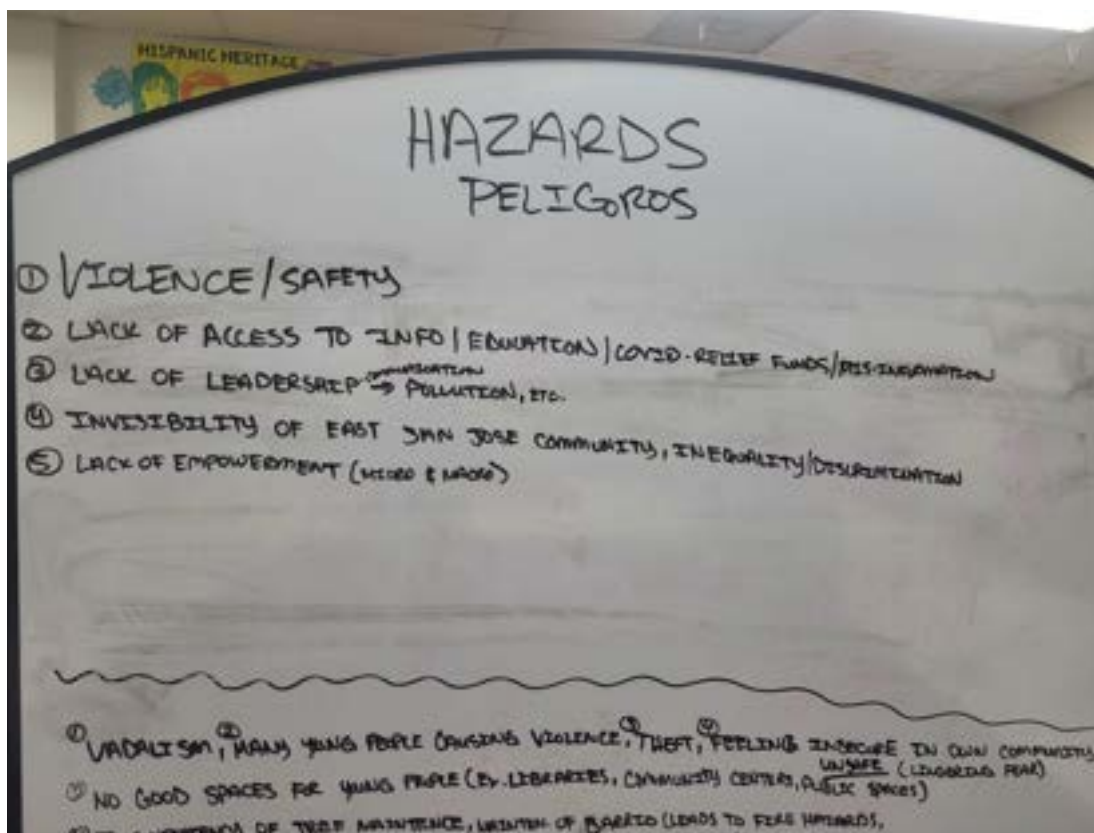 HISPANIC HERITAGE
HAZARDS
PELIGROS
① VIOLENCE/SAFETY
② LACK OF ACCESS TO INFO/EDUCATION/COVID-RELIEF FUNDS/DIS-INFORMATION
③ LACK OF LEADERSHIP → POLLUTION, ETC.
④ INVISIBILITY OF EAST SAN JOSE COMMUNITY, INEQUALITY/DISCRIMINATION
⑤ LACK OF EMPOWERMENT (MICRO & MACRO)
① VADALISM, ② MANY YOUNG PEOPLE CAUSING VIOLENCE, ③ THEFT, ④ FEELING INSECURE IN OWN COMMUNITY
UNSAFE (LINGERING FEAR)
⑤ NO GOOD SPACES FOR YOUNG PEOPLE (EX. LIBRARIES, COMMUNITY CENTERS, PUBLIC SPACES)
OF TREE MAINTENCE, OF BARRIO (LEADS TO FIRE HAZARDS,